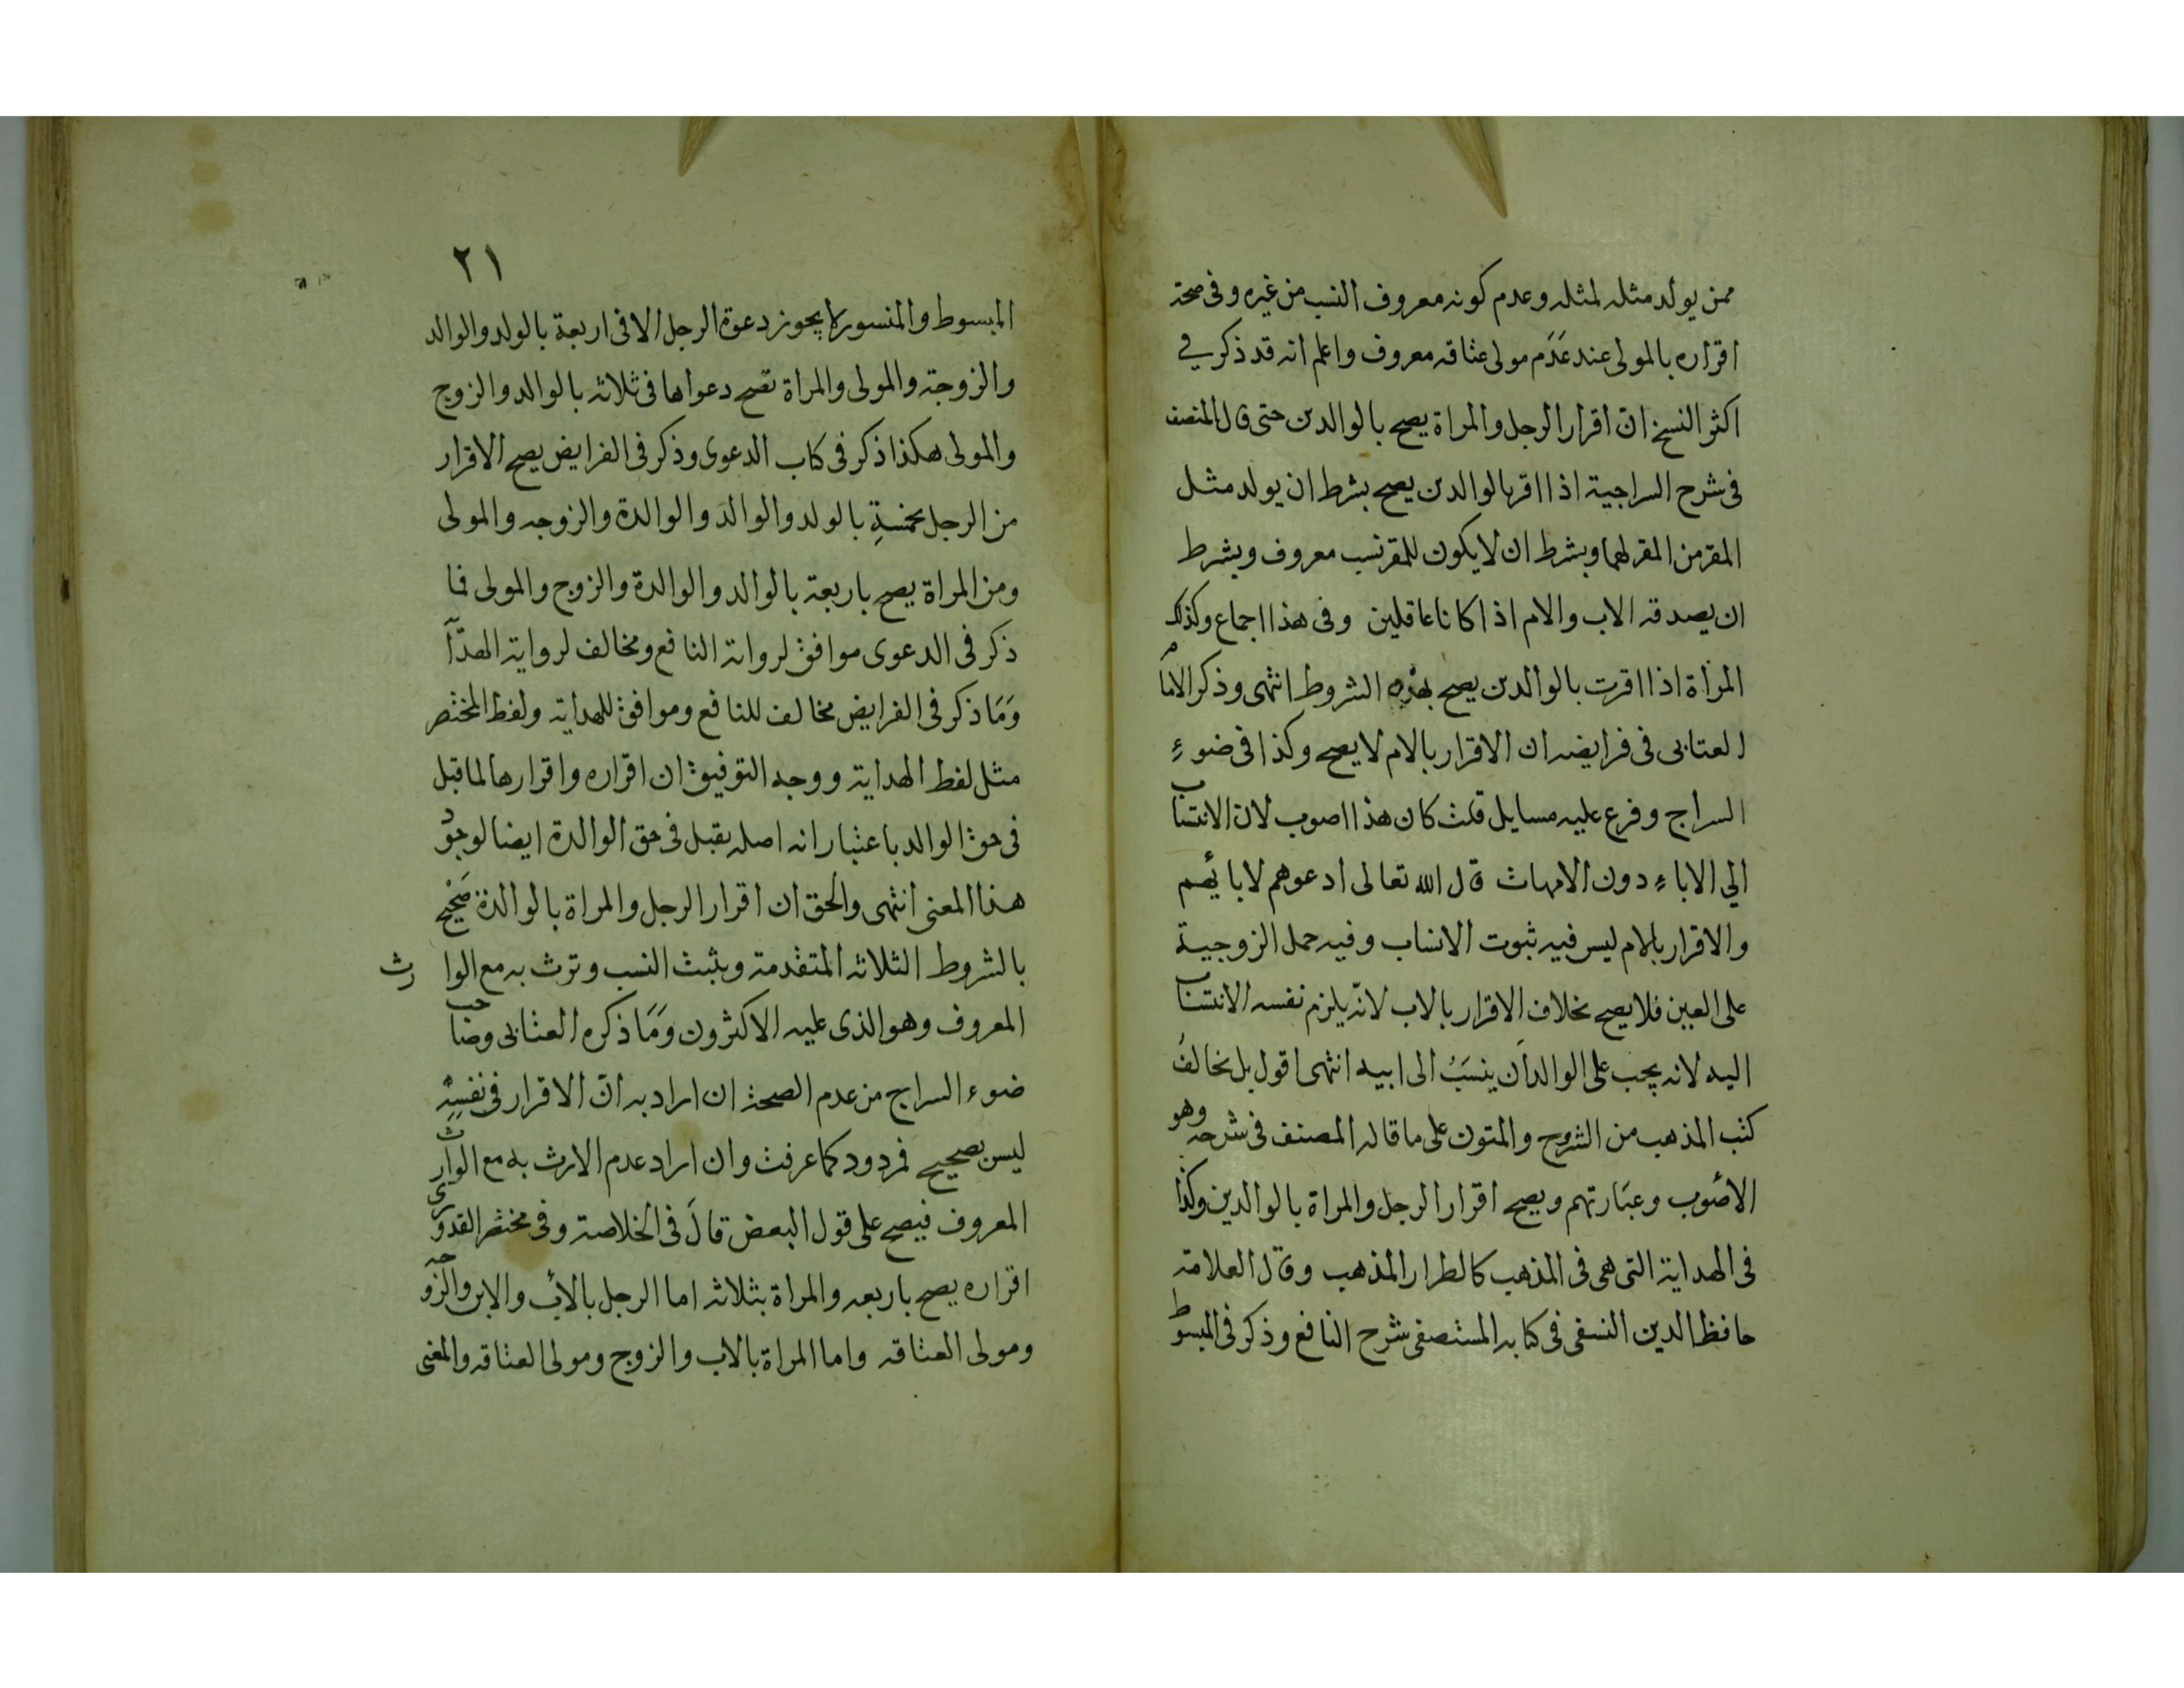 ممن يولد مثله لمثله وعدم كونه معروف النسب من غيره وفى صحة
اقراره بالمولى عند عَدَم مولى عتاقه معروف واعلم انه قد ذكر في
اكثر النسخ انّ اقرار الرجل والمراة يصح بالوالدين حتى قال المصنف
فى شرح السراجية اذا اقر بالوالدين يصح بشرط ان يولد مثل
المقر من المقر لهما وبشرط ان لا يكون للمقر نسب معروف وبشرط
ان يصدقه الاب والام اذا كانا عاقلين وفى هذا اجماع وكذلك
المرأة اذا اقرت بالوالدين يصح بهذه الشروط انتهى وذكر الامام
العتابى فى فرايضه ان الاقرار بالام لا يصح وكذا فى ضوءِ
السراج وفرع عليه مسايل قلت كان هذا اصوب لان الانتساب
الي الاباء دون الامهات قال الله تعالى ادعوهم لابائهم
والاقرار بالام ليس فيه ثبوت الانساب وفيه حمل الزوجية
على العين فلا يصح بخلاف الاقرار بالاب لانّه يلزم نفسه الانتساب
اليه لانه يجب على الوالد أن ينسَبُ الى ابيه انتهى اقول بل نخالفُ
كتب المذهب من الشروح والمتون على ما قاله المصنف فى شرحه وهو
الاصُوب وعبَارتهم ويصح اقرار الرجل والمراة بالوالدين وكذا
فى الهداية التى هى فى المذهب كالطراز المذهب وقال العلامة
حافظ الدين النسفى فى كتابه المستصفى شرح النافع وذكر فى المبسوط
٢١
المبسوط والمنسور لا يجوز دعوة الرجل الا فى اربعة بالولد والوالد
والزوجة والمولى والمراة تصح دعواها فى ثلاثه بالوالد والزوج
والمولى هكذا ذكر فى كتاب الدعوى وذكر فى الفرايض يصح الاقرار
من الرجل بخمسةِ بالولد والوالدَ والوالدة والزوجه والمولى
ومن المراة يصح باربعة بالوالد والوالدة والزوج والمولى فما
ذكر فى الدعوى موافق لرواية النافع ومخالف لرواية الهدآ
وَمَا ذكر فى الفرايض مخالف للنافع وموافق للهداية ولفظ المختصر
مثل لفظ الهداية ووجه التوفيق ان اقراره واقرارها لما قبل
فى حق الوالد باعتبار انه اصله يقبل فى حق الوالدة ايضا لوجود
هذا المعنى انتهى والحق ان اقرار الرجل والمراة بالوالدة صَحْيح
بالشروط الثلاثه المتقدمة ويثبت النسب وترث به مع الوارث
المعروف وهو الذى عليه الاكثرون وَمَا ذكره العتابى وصاحب
ضوء السراج من عدم الصحة ان اراد به انّ الاقرار فى نفسِه
ليس بصحيح فمردود كما عرفت وان اراد عدم الارث به مع الوارث
المعروف فيصح على قول البعض قالَ فى الخلاصة وفى مختصر القدورى
اقراره يصح باربعه والمراة بثلاثه اما الرجل بالأب والابن والزوجه
ومولى العتاقه واما المراة بالاب والزوج ومولى العتاقه والمغنى